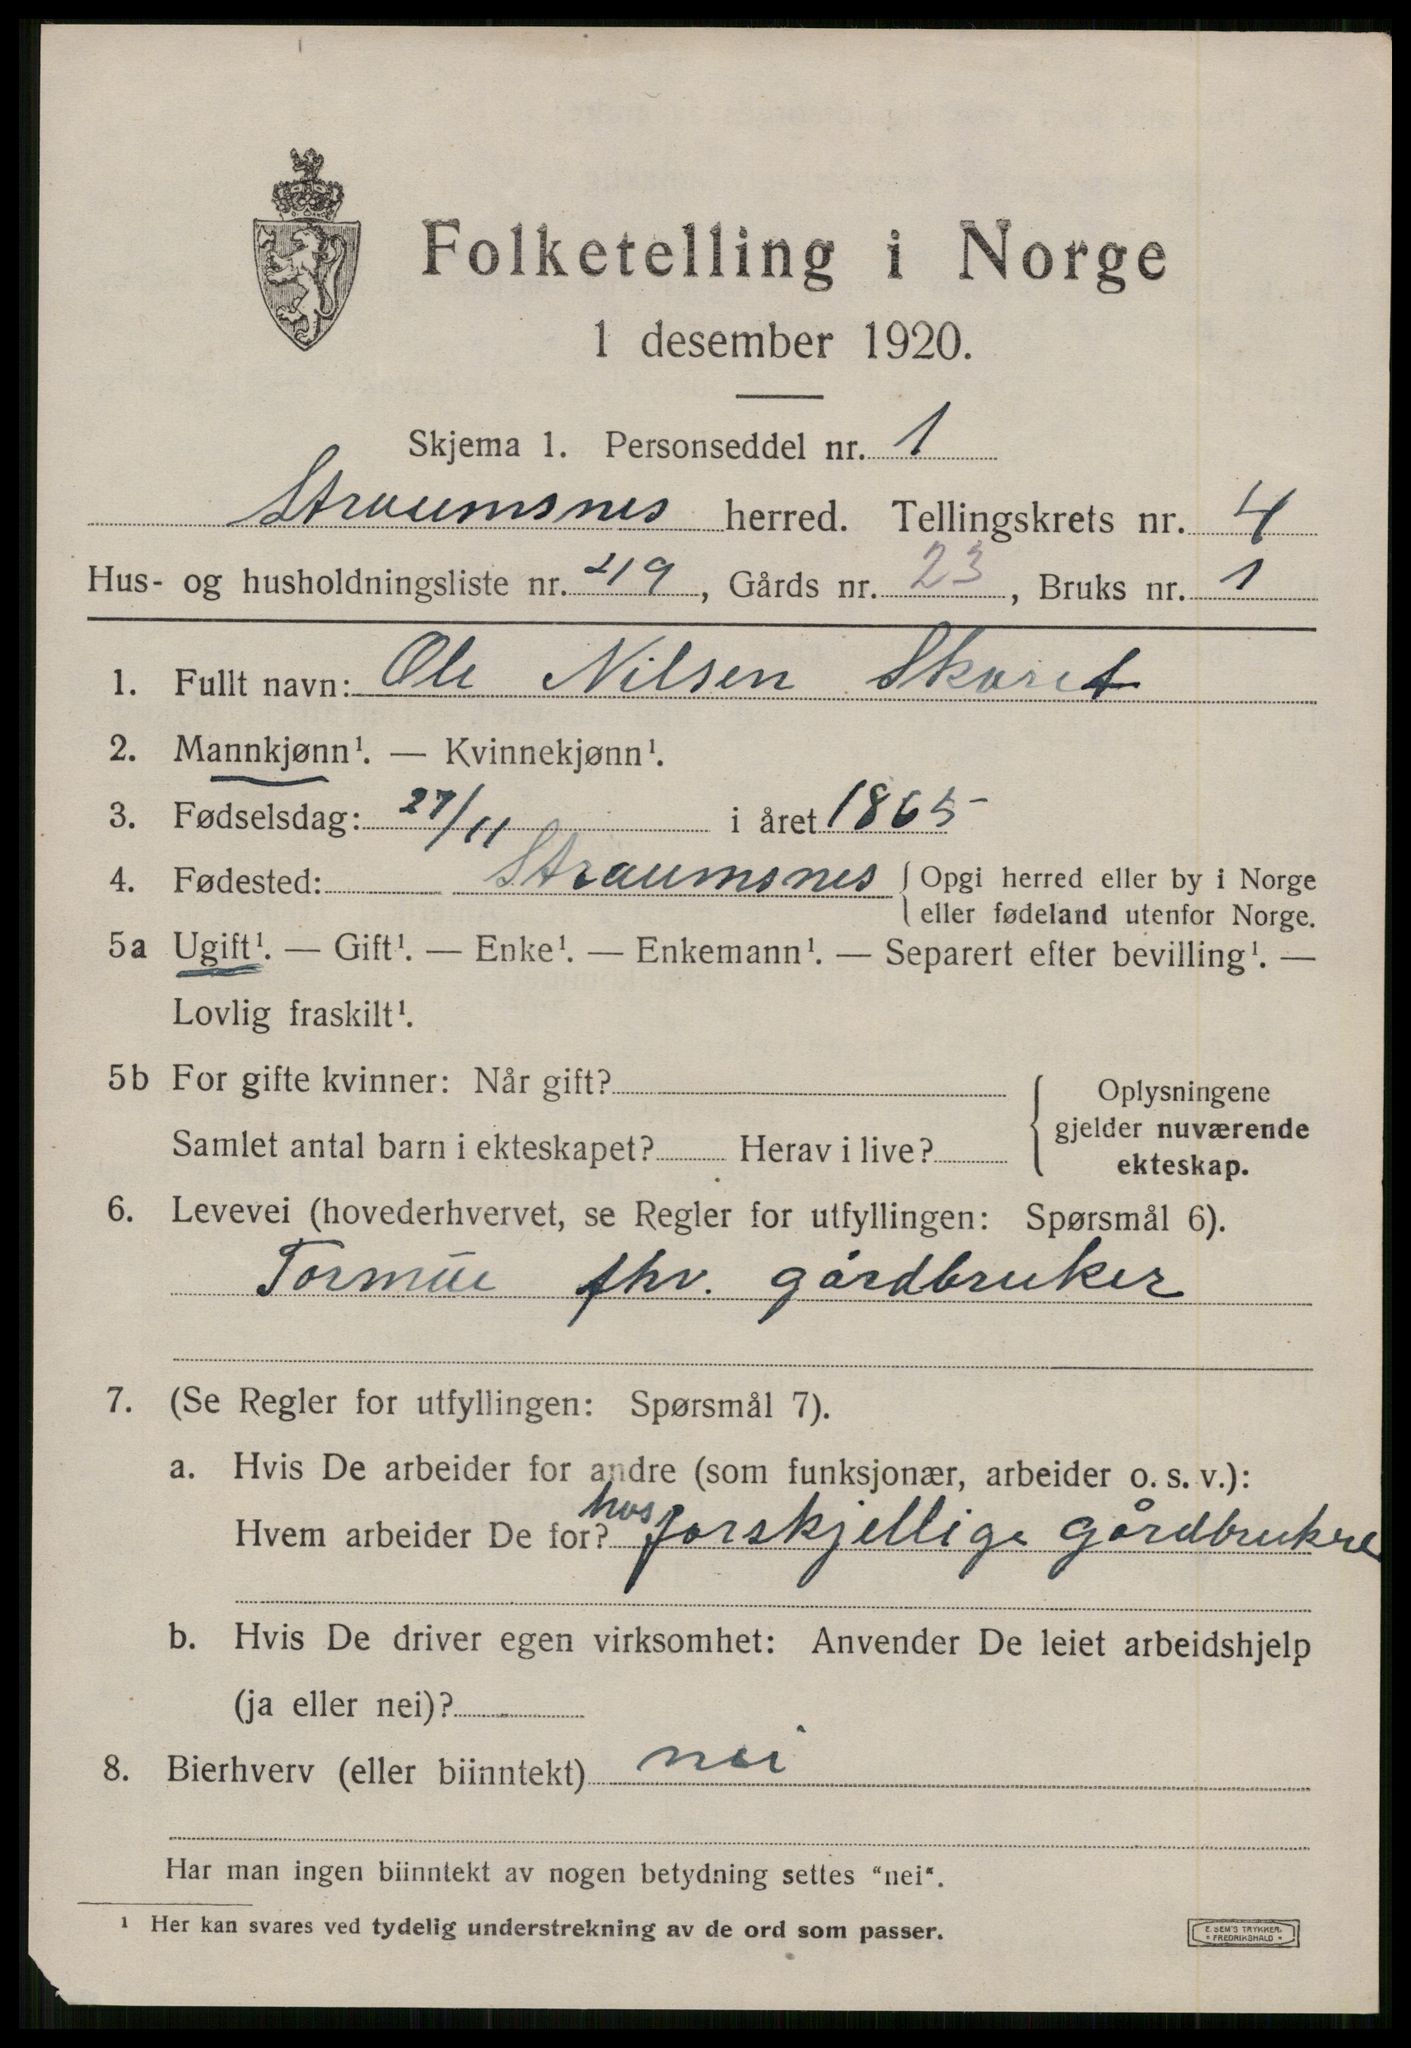 Folketelling i Norge
1 desember 1920.
Skjema 1. Personseddel nr. 1
Straumsnes herred. Tellingskrets nr. 4
Hus- og husholdningsliste nr. 49, Gårds nr. 23, Bruks nr. 1
1. Fullt navn: Ole Nilsen Skaret
2. Mannkjønn¹. — Kvinnekjønn¹.
3. Fødselsdag: 27/11 i året 1865
4. Fødested: Straumsnes { Opgi herred eller by i Norge
eller fødeland utenfor Norge.
5a Ugift¹. — Gift¹. — Enke¹. — Enkemann¹. — Separert efter bevilling¹. —
Lovlig fraskilt¹.
5b For gifte kvinner: Når gift?
Samlet antal barn i ekteskapet? Herav i live?
{ Oplysningene
gjelder nuværende
ekteskap.
6. Levevei (hovederhvervet, se Regler for utfyllingen: Spørsmål 6).
fhv. gårdbruker
7. (Se Regler for utfyllingen: Spørsmål 7).
a. Hvis De arbeider for andre (som funksjonær, arbeider o. s. v.):
Hvem arbeider De for? hos forskjellige gårdbrukre
b. Hvis De driver egen virksomhet: Anvender De leiet arbeidshjelp
(ja eller nei)?
8. Bierhverv (eller biinntekt) nei
Har man ingen biinntekt av nogen betydning settes "nei".
¹ Her kan svares ved tydelig understrekning av de ord som passer.
E. SEM'S TRYKKERI
* FREDRIKSHALD *